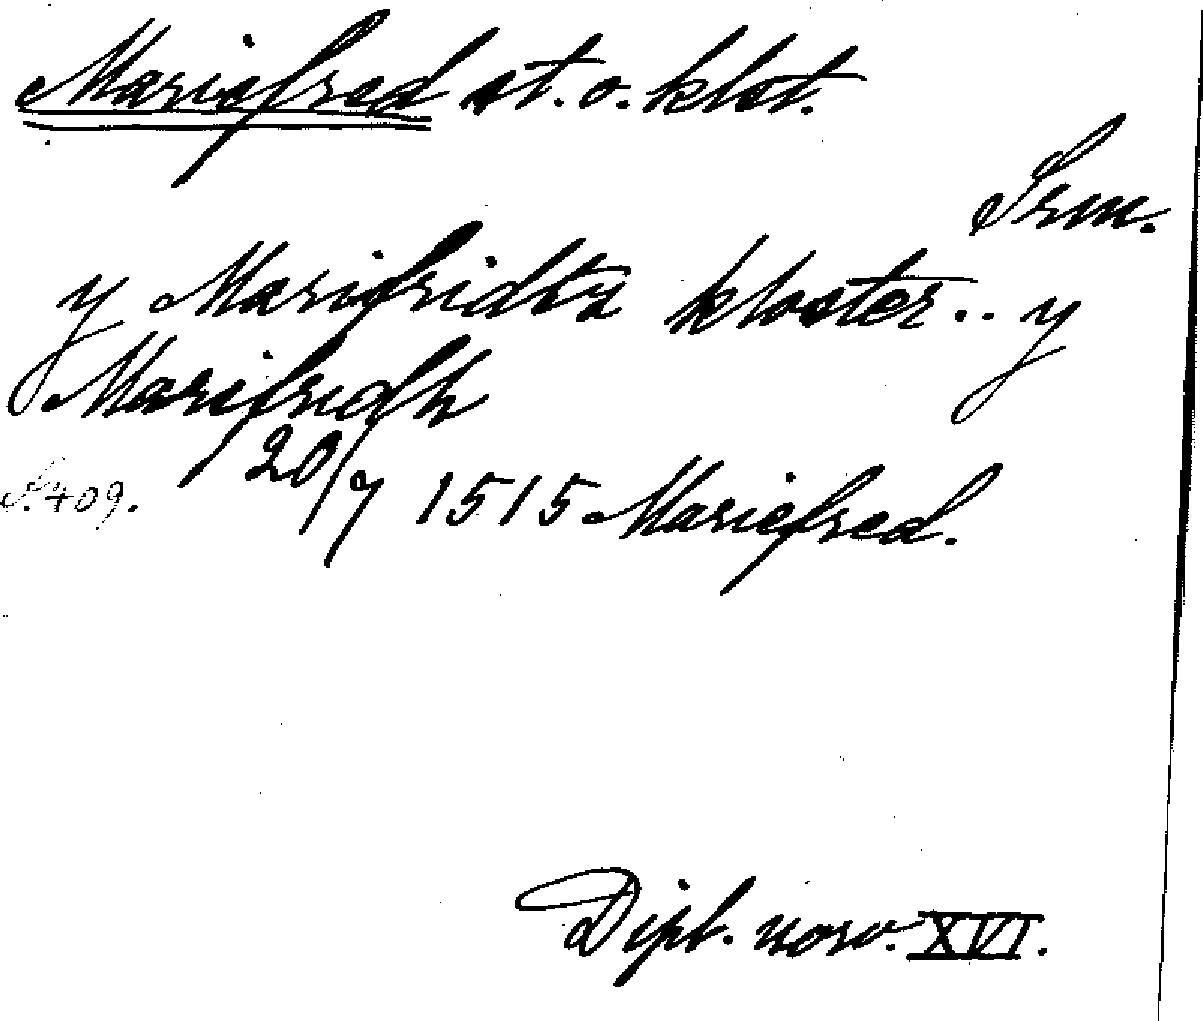 Mariefred st. o. klost.
Srm.
y Marifridtz kloster.. y
Marifridh
S. 409. 20/7 1515 Mariefred.
Dipl. norv. XVI.